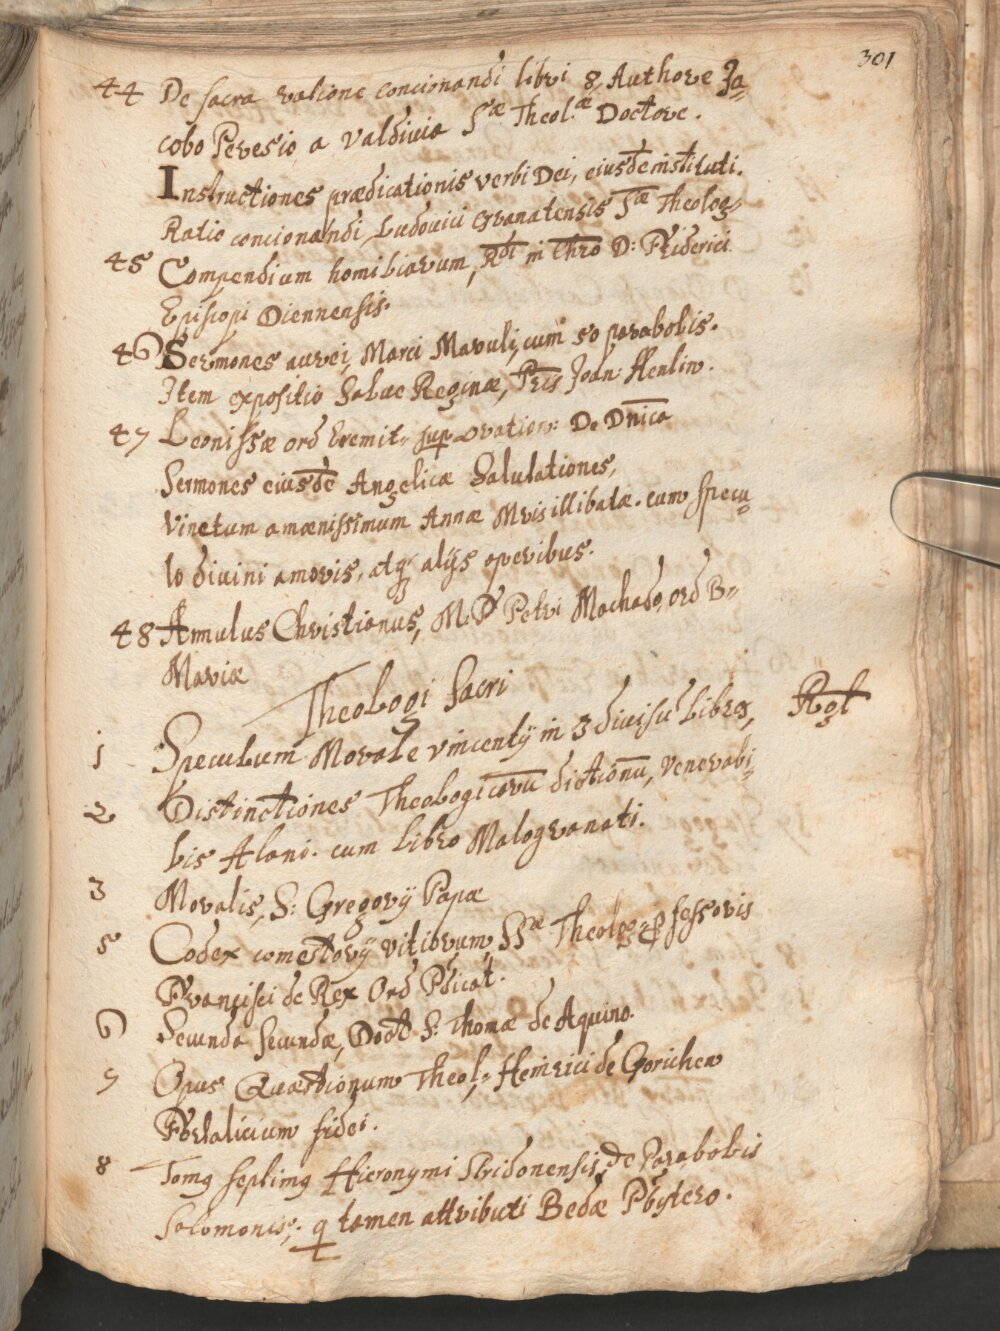 301
44 De sacra ratione concionandi libri 8 Authore Ja=
cobo Peresio a Valdivia Sæ Theol.æ Doctore.
Instructiones prædicationis verbi Dei, eiusdē instituti.
Ratio concionandi Ludovici Granatensis Sæ Theolog=
45 Compendium homiliarum, Rdi in Chro D: Friderici
Episcopi Diennensis.
46 Sermones aurei, Marci Maruli, cum 50 parabolis.
Item expositio Salve Reginæ, Pris Joan: Henlin.
47 Leonissæ ord Eremit= sup ovation: De Dnica
Sermones eiusdē Angelicæ Salutationes,
Vinetum amænissimum Annæ Mris illibatæ. cum specu=
lo divini amoris, atq alijs operibus.
48 Amulus Christianus, M. P Petri Machado, ord B=
Mariæ
Theologi Sacri
1 Speculum Morale vincentij in 3 divisū Libros, Rgł
2 Distinctiones Theologicarū dictionū, Venerabi=
lis Alani. cum Libro Malogranati.
3 Moralis, S: Gregorij Papæ
5 Codex comestorij vitiorum, SSæ Theolo pfessoris
Francisci de Rex Ord Pdicat.
6 Secunda Secundæ, Doct S: Thomæ de Aquino.
7 Opus Quæstionum Theol= Heinrici de Gorichen
Fortalicium fidei.
8 Tomg septimg Hieronymi Stridonensis, de Parabolis
Solomonis, q tamen attributi Bedæ Pbytero.